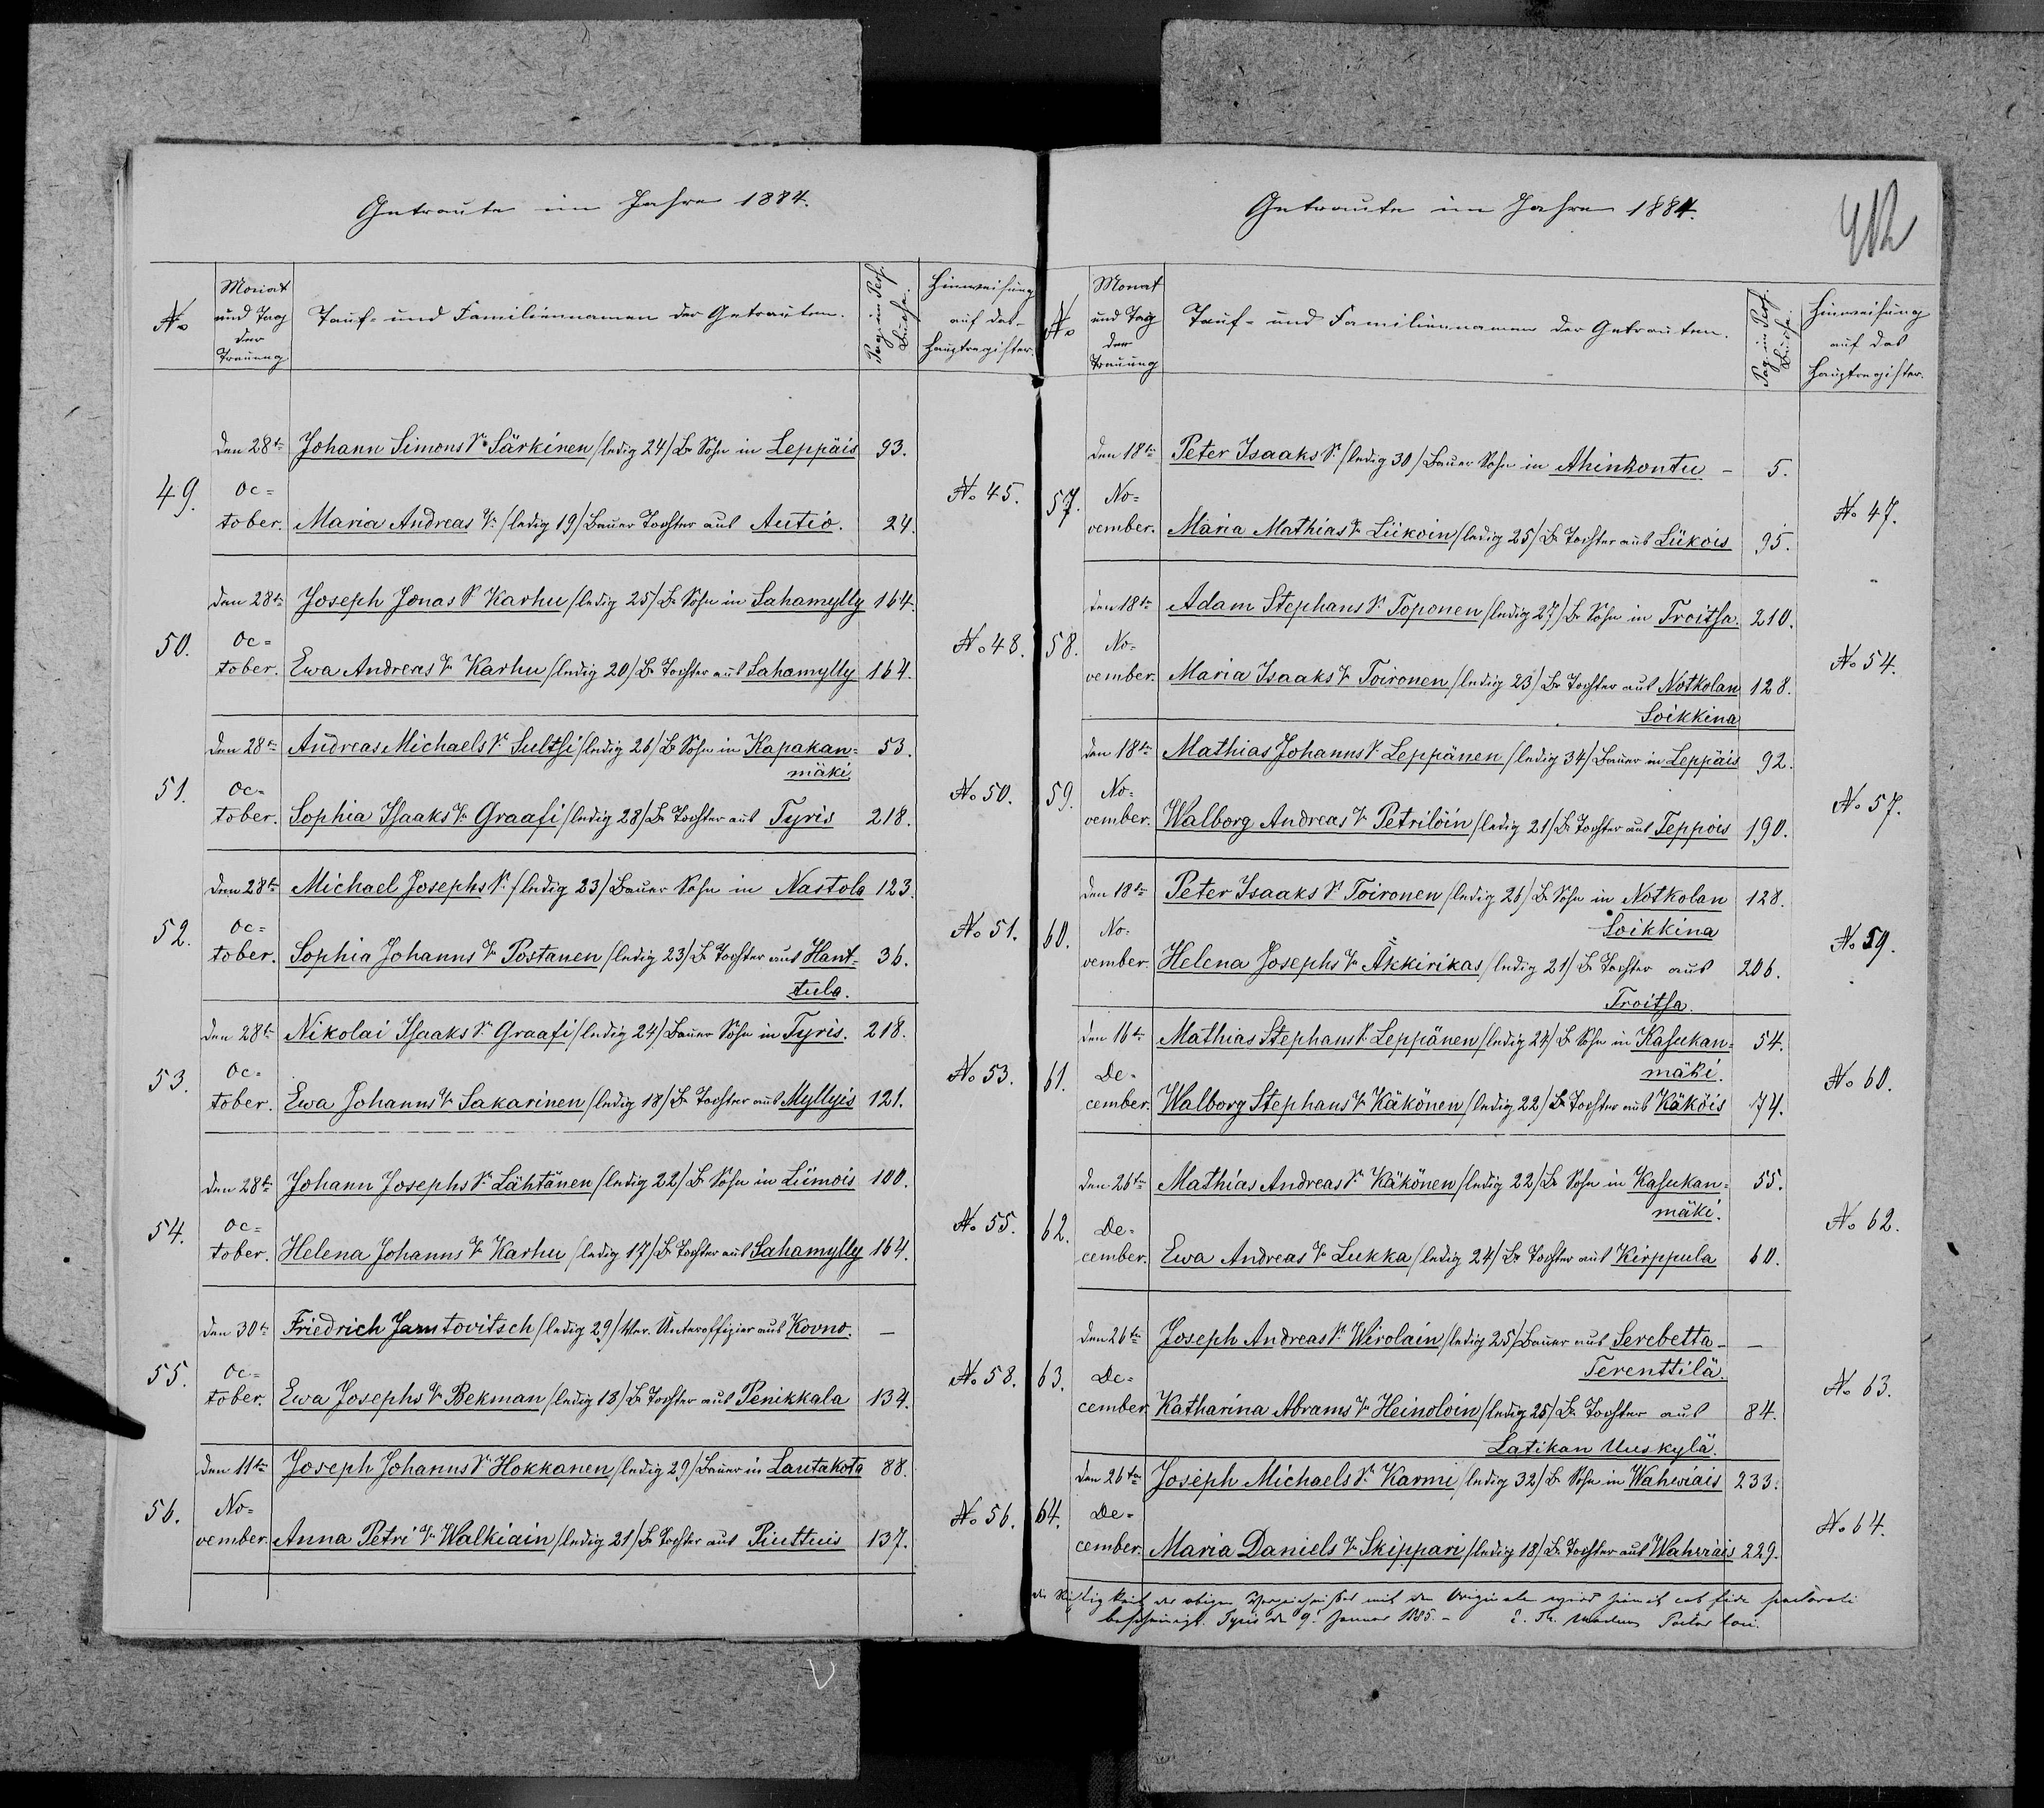 Getraute im Jahre 1884.
No
Monat und Tag der Trauung
Tauf- und Familiennamen der Getrauten.
Pag. im Pers. Buche.
Hinweisung auf das Hauptregister.
den 28ten Johann Simons S. Särkinen /ledig 24/ B. Sohn in Leppäis 93.
49. Oc= No 45.
tober. Maria Andreas T. /ledig 19/ Bauer Tochter aus Autio. 24.
den 28ten Joseph Jonas S. Karhu /ledig 25/ B. Sohn in Sahamylly 164.
50. Oc= No 48.
tober. Ewa Andreas T. Karhu /ledig 20/ B. Tochter aus Sahamylly 164.
den 28ten Andreas Michaels S. Sultsi /ledig 26/ B. Sohn in Kapakan= 53.
mäki
51. Oc= No 50.
tober. Sophia Isaaks T. Graafi /ledig 28/ B. Tochter aus Tyris 218.
den 28ten Michael Josephs S. /ledig 23/ Bauer Sohn in Nastola 123.
52. Oc= No 51.
tober. Sophia Johanns T. Postanen /ledig 23/ B. Tochter aus Hant= 36.
tula.
den 28ten Nikolai Isaaks S. Graafi /ledig 24/ Bauer Sohn in Tyris. 218.
53. Oc= No 53.
tober. Ewa Johanns T. Sakarinen /ledig 18/ B. Tochter aus Myllyis 121.
den 28ten Johann Josephs S. Lähtänen /ledig 22/ B. Sohn in Liimois 100.
54. Oc= No 55.
tober. Helena Johanns T. Karhu /ledig 17/ B. Tochter aus Sahamylly 164.
den 30ten Friedrich Jamtovitsch /ledig 29/ Unteroffizier aus Kovno. —
55. Oc= No 58.
tober. Ewa Josephs T. Bekman /ledig 18/ B. Tochter aus Penikkala 134.
den 11ten Joseph Johanns S. Hokkanen /ledig 29/ Bauer in Lautakota 88.
56. No= No 56.
vember. Anna Petri T. Walkiain /ledig 21/ B. Tochter aus Piuttuis 137.
Getraute im Jahre 1884.
No
Monat und Tag der Trauung
Tauf- und Familiennamen der Getrauten.
Pag. im Pers. Buche.
Hinweisung auf das Hauptregister.
den 18ten Peter Isaaks S. /ledig 30/ Bauer Sohn in Ahinkontu – 5.
57. No= No 47.
vember. Maria Mathias T. Liikoin /ledig 25/ B. Tochter aus Liikois 95.
den 18ten Adam Stephans S. Toponen /ledig 27/ B. Sohn in Troitsa. 210.
58. No= No 54.
vember. Maria Isaaks T. Toironen /ledig 23/ B. Tochter aus Notkolan 128.
Soikkina
den 18ten Mathias Johanns S. Leppänen /ledig 34/ Bauer in Leppäis 92.
59. No= No 57.
vember. Walborg Andreas T. Petrilöin /ledig 21/ B. Tochter aus Teppois 190.
den 18ten Peter Isaaks S. Toironen /ledig 26/ B. Sohn in Notkolan 128.
Soikkina
60. No= No 59.
vember. Helena Josephs T. Äkkirikas /ledig 21/ B. Tochter aus 206.
Troitsa.
den 16ten Mathias Stephans S. Leppänen /ledig 24/ B. Sohn in Kasukan= 54.
mäki.
61. De= No 60.
cember. Walborg Stephans T. Käkönen /ledig 22/ B. Tochter aus Käköis 74.
den 26ten Mathias Andreas S. Käkönen /ledig 22/ B. Sohn in Kasukan= 55.
mäki.
62. De= No 62.
cember. Ewa Andreas T. Lukka /ledig 24/ B. Tochter aus Kirppula 60.
den 26ten Joseph Andreas S. Wirolain /ledig 25/ Bauer aus Serebetta – —
Terenttilä.
63. De= No 63.
cember Katharina Abrams T. Heinoloin /ledig 25/ B. Tochter aus 84.
Latikan Uuskylä.
den 26ten Joseph Michaels S. Karmi /ledig 32/ B. Sohn in Wahwiais 233.
64. De= No 64.
cember. Maria Daniels T. Skippari /ledig 18/ B. Tochter aus Wahwiais 229.
mit dem Originale wird hiemit sub fide pastorali
bescheinigt. Tyris d. 9. Januar 1885. – Pastor loci.